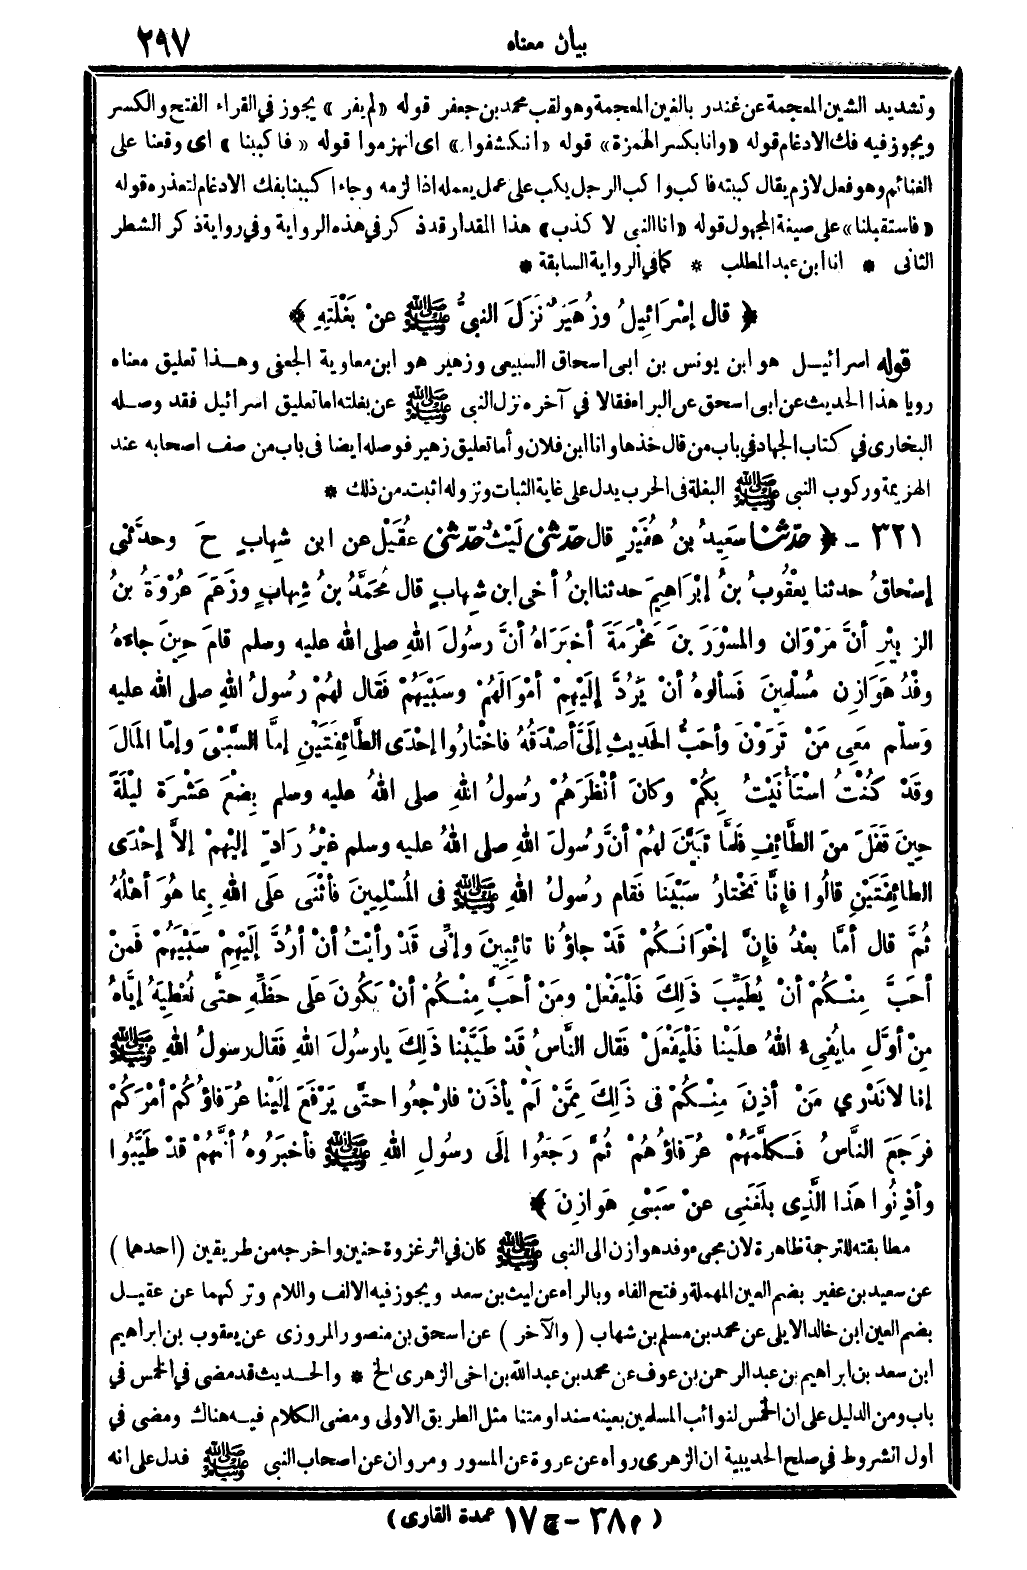 بيان معناه ٢٩٧
وتشديد الشين المعجمة عن غندر بالغين المعجمة وهو لقب محمد بن جعفر قوله «لم يفر» يجوز في القراء الفتح والكسر
ويجوز فيه فك الادغام قوله «وانا بكسر الهمزة» قوله «انكشفوا» اى انهزموا قوله «فاكببنا» اى وقعنا على
الغنائم وهو فعل لازم يقال كببته فاكب واكب الرجل يكب على عمل يعمله اذا لزمه وجاء اكببنا بفك الادغام لتعذره قوله
«فاستقبلنا» على صيغة المجهول قوله «انا النبى لا كذب» هذا المقدار قد ذكر في هذه الرواية وفي رواية ذكر الشطر
الثانى * انا ابن عبد المطلب * كما في الرواية السابقة *
﴿ قال إِسْرَائِيلُ وزُهَيْرٌ نَزَلَ النبىُّ ﷺ عنْ بَغْلَتِهِ ﴾
قوله اسرائيل هو ابن يونس بن ابى اسحاق السبيعى وزهير هو ابن معاوية الجعفى وهذا تعليق معناه
رويا هذا الحديث عن ابى اسحق عن البراء فقالا في آخره نزل النبى ﷺ عن بغلته اما تعليق اسرائيل فقد وصله
البخارى في كتاب الجهاد في باب من قال خذها وانا ابن فلان وأما تعليق زهير فوصله ايضا فى باب من صف اصحابه عند
الهزيمة وركوب النبى ﷺ البغلة فى الحرب يدل على غاية الثبات ونزوله اثبت من ذلك *
٣٢١ ـ ﴿ حدّثنا سَعِيدُ بنُ عُفَيْرٍ قال حدّثنى لَيْثٌ حدّثنى عُقَيْلٌ عن ابن شِهابٍ ح وحدَّثنى
إِسْحاقُ حدثنا يعْقُوبُ بنُ إِبْرَاهِيمَ حدثنا ابنُ أخى ابن شِهابٍ قال مُحَمَّدُ بنُ شِهابٍ وزَعَمَ عُرْوَةُ بنُ
الزبيْرِ أنَّ مَرْوَان والمسْوَرَ بنَ مَخْرَمَةَ أخبَرَاهُ أنَّ رسُولَ اللهِ صلى الله عليه وسلم قامَ حِينَ جاءهُ
وفْدُ هَوَازِن مُسْلِمِينَ فَسألوهُ أنْ يَرُدَّ إلَيْهِمْ أمْوَالَهُمْ وسَبْيَهُمْ فَقال لهُمْ رسُولُ اللهِ صلى الله عليه
وَسلّم مَعِى مَنْ تَرَوْنَ وأحَبُّ الحَدِيثِ إلَىَّ أصْدَقُهُ فاخْتارُوا إحْدَى الطَّائِفتَيْنِ إمَّا السَّبْىَ وإمّا المَالَ
وقَدْ كُنْتُ اسْتَأْنَيْتُ بِكُمْ وكانَ أنْظَرَهُمْ رسُولُ اللهِ صلى اللهُ عليه وسلم بِضْعَ عَشْرَةَ لَيْلَةً
حِينَ قَفَلَ منَ الطَّائِفِ فَلمَّا تبَيَّنَ لهُمْ أنَّ رسُولَ اللهِ صلى اللهُ عليه وسلم غيْرُ رَادٍّ إليْهِمْ إلاَّ إحْدَى
الطائِفَتَيْنِ قالُوا فإنَّا نَخْتارُ سَبْيَنا فَقام رسولُ اللهِ ﷺ فى المُسْلِمِينَ فأثْنَى علَى اللهِ بِما هُوَ أهْلُهُ
ثُمَّ قال أمَّا بعْدُ فإنَّ إخْوَانَكُمْ قَدْ جاؤُنا تائِبِينَ وإنِّى قَدْ رأيْتُ أنْ أرُدَّ إلَيْهِمْ سَبْيَهُمْ فَمنْ
أحَبَّ مِنْكُمْ أنْ يُطَيِّبَ ذَلِكَ فَلْيَفْعَلْ ومَنْ أحَبَّ مِنْكُمْ أنْ يَكُونَ علَى حَظِّهِ حتَّى نُعْطِيَهُ إيَّاهُ
مِنْ أوَّلِ ما يُفِىءُ اللهُ علَيْنا فَلْيَفْعَلْ فقال النَّاسُ قدْ طَيَّبْنا ذَلِكَ يارسُولَ اللهِ فَقال رسولُ اللهِ ﷺ
إنا لا نَدْرِي مَنْ أذِنَ مِنْكُمْ فى ذَلِكَ مِمَّنْ لَمْ يأذَنْ فارْجِعُوا حتَّى يَرْفَعَ إلَيْنا عُرَفاؤُكُمْ أمْرَكُمْ
فرَجَعَ النَّاسُ فَكلَّمَهُمْ عُرَفاؤُهُمْ ثُمَّ رَجَعُوا إلَى رسُولِ اللهِ ﷺ فأخبَرُوهُ أنَّهُمْ قَدْ طَيَّبُوا
وأذِنُوا هَذا الَّذِى بلَغَنِى عنْ سَبْىِ هَوازِنَ ﴾
مطابقته للترجمة ظاهرة لان مجىء وفد هوازن الى النبى ﷺ كان في اثر غزوة حنين واخرجه من طريقين (احدهما)
عن سعيد بن عفير بضم العين المهملة وفتح الفاء وبالراء عن ليث بن سعد ويجوز فيه الالف واللام وتركهما عن عقيل
بضم العين ابن خالد الايلى عن محمد بن مسلم بن شهاب (والآخر) عن اسحق بن منصور المروزى عن يعقوب بن ابراهيم
ابن سعد بن ابراهيم بن عبد الرحمن بن عوف عن محمد بن عبد الله بن اخى الزهرى الخ * والحديث قد مضى في الخمس في
باب ومن الدليل على ان الخمس لنوائب المسلمين بعينه سندا ومتنا مثل الطريق الاولى ومضى الكلام فيه هناك ومضى في
اول الشروط في صلح الحديبية ان الزهرى رواه عن عروة عن المسور ومروان عن اصحاب النبى ﷺ فدل على انه
(م ٣٨ ـ ج ١٧ عمدة القارى)